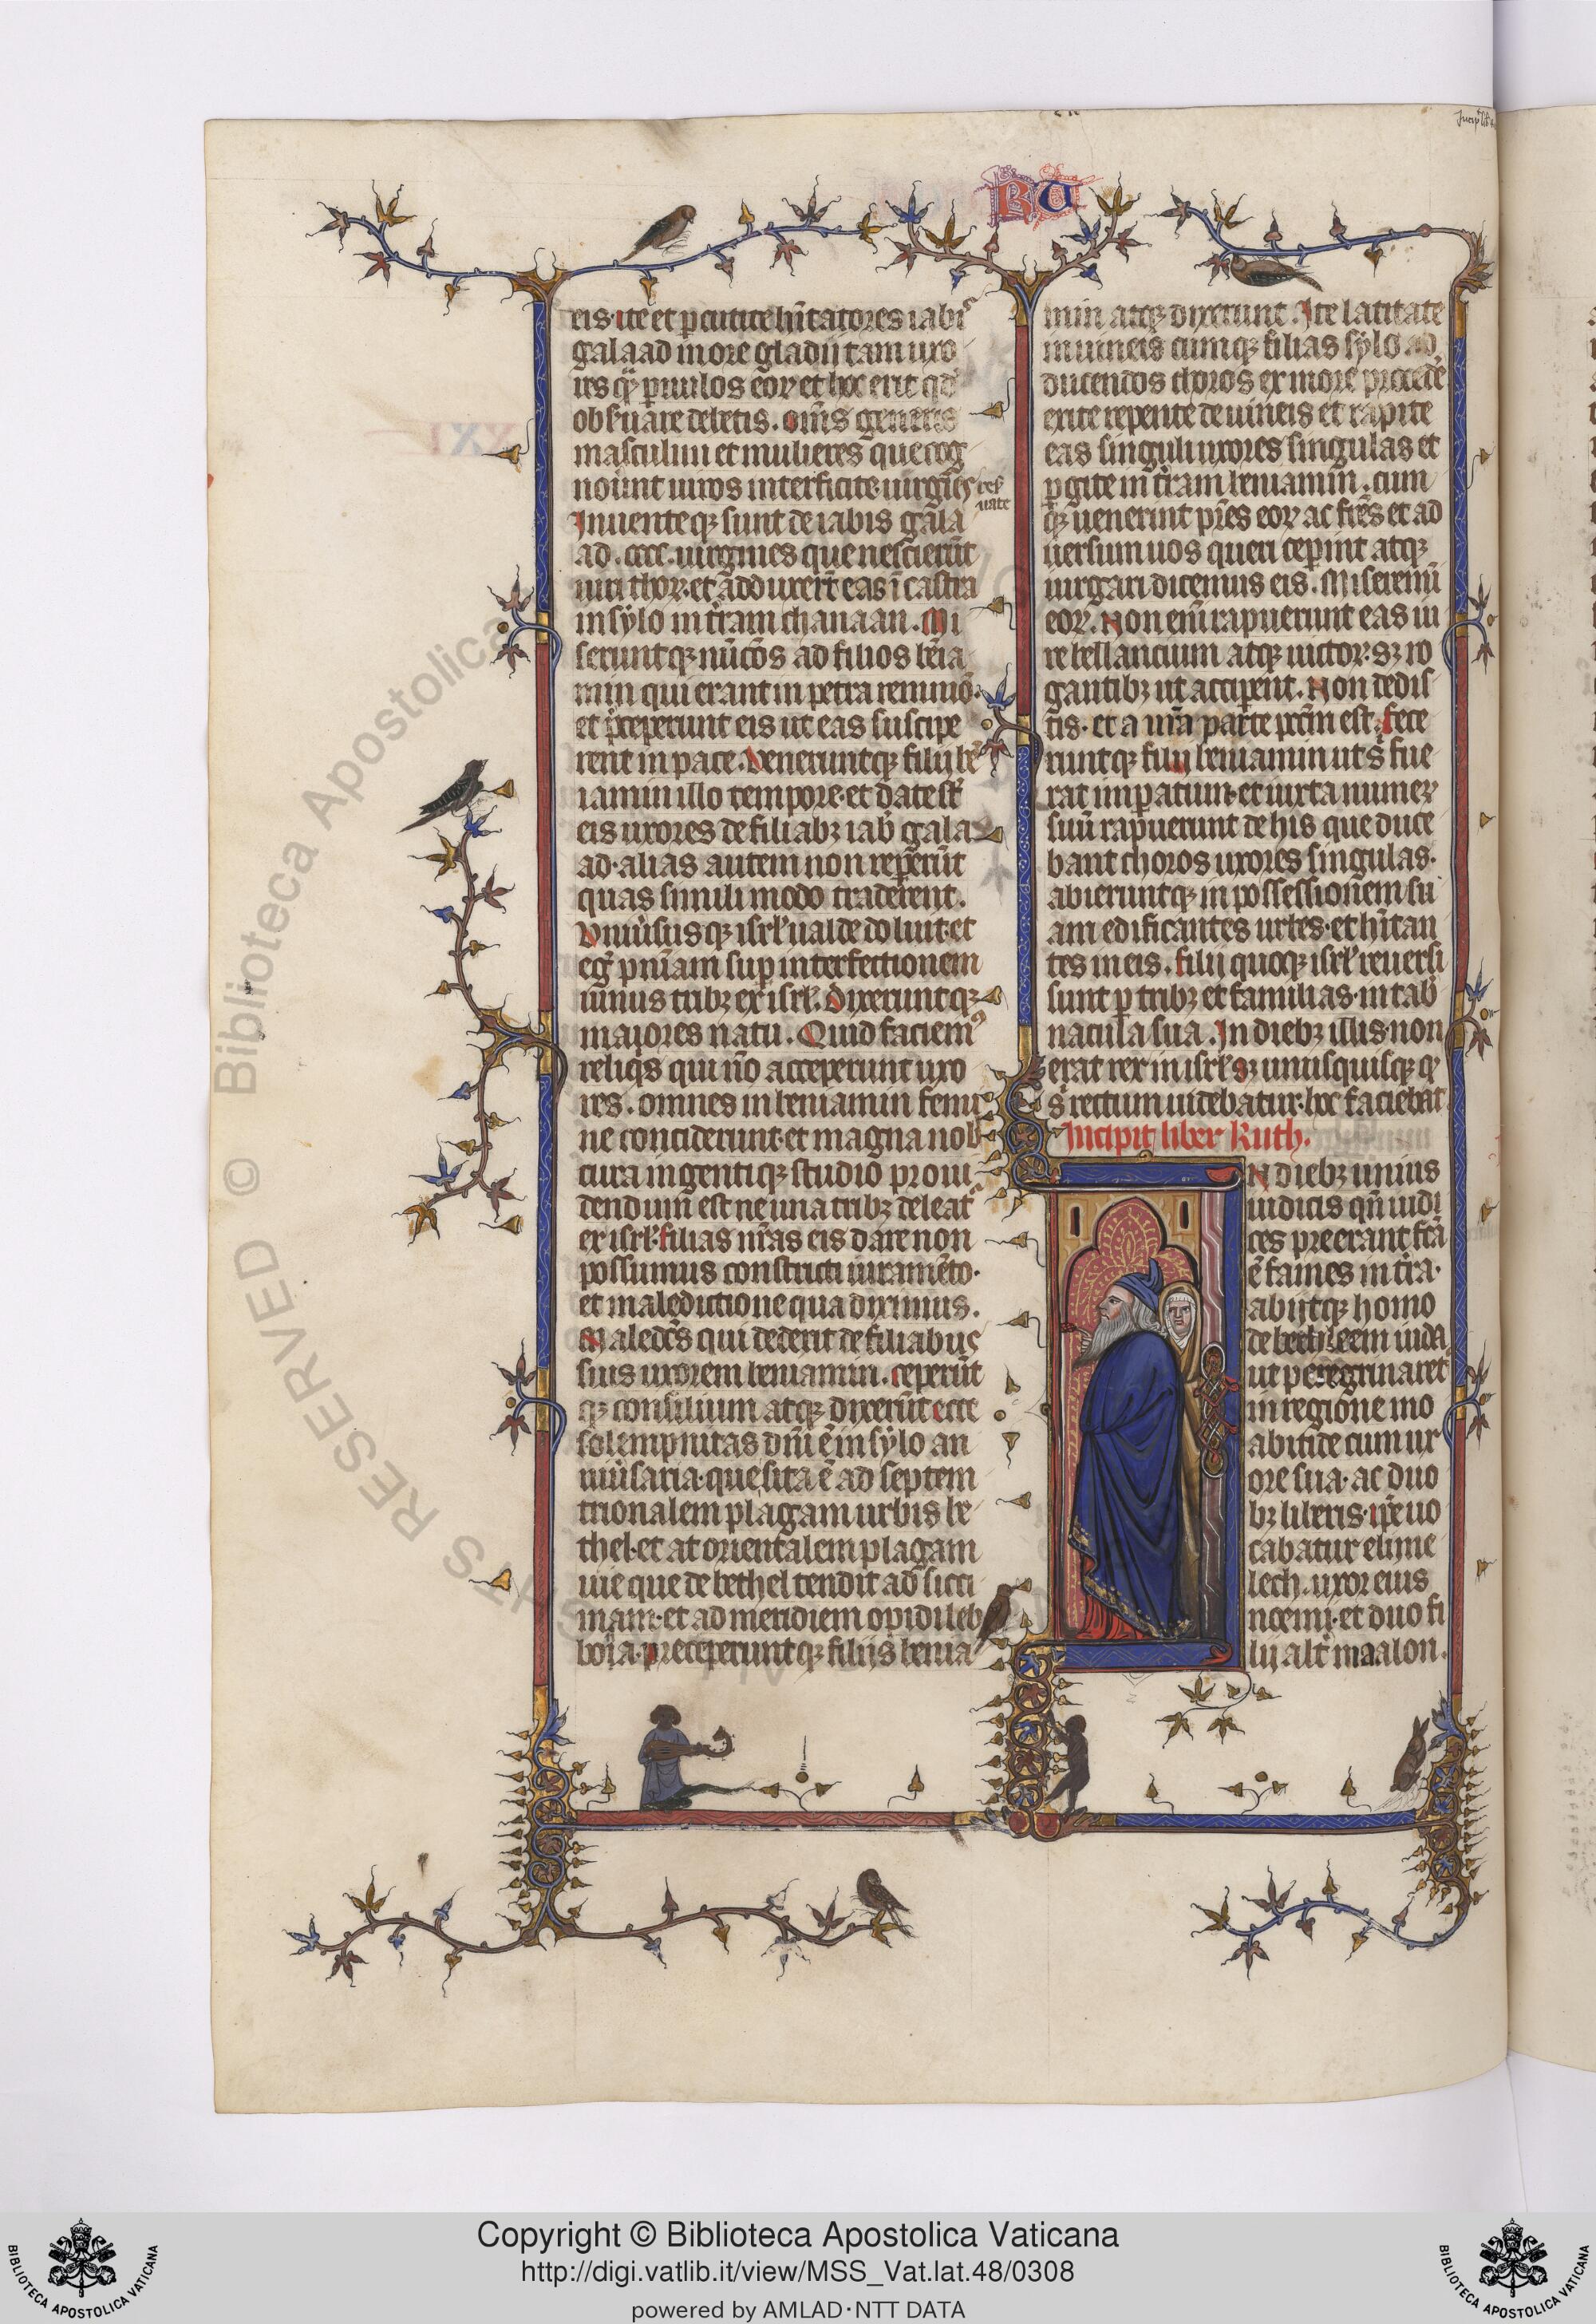 RU
eis. ite et ꝑcutite hītatores iabis
galaad in ore gladij tam uxo
res qͣ ꝑuulos eoꝝ et hoc erit qd̓
obẜuare debetis. om̄s generis
masculini et mulieres que cog
nouūnt uiros interficite. uirgīes ẜes
uate
Inuenteqꝫ sunt de iabis gala
ad. cccc. uirgines que nescierūt
uiri thoꝝ. et adduxer̄t eas ī castra
in sylo in t̄ram chanaan. Mi
seruntqꝫ nūcōs ad filios bēia
min qui erant in petra remmō.
et p̄ceperunt eis ut eas suscipe
rent in pace. Veneruntqꝫ filij bē
iamin illo tempore. et date sūt
eis uxores de filiabꝫ iab̓ gala
ad. alias autem non reꝑerūt
quas simili modo traderent.
Uniuīsusqꝫ isrl̓ ualde doluit. et
eg̓ pn̄iam suꝑ interfectionem
unius tribꝫ ex isrl̓. Dixeruntqꝫ
maiores natu. Quid faciemꝰ
reliq̓s qui nō acceperunt uxo
res. omnes in beniamin femi
ne conciderunt. et magna nob̓
cura ingentiqꝫ studio proui
dendum est ne una tribꝫ deleat᷑
ex isrl̓. filias nr̄as eis dare non
possumus constricti iuramēto.
et maledictione qua diximus.
Maledc̄s qui dederit de filiabus
suis uxorem beniamin. ceperūt
qꝫ consilium atqꝫ dixerūt ecce
solempnitas dn̄i ē in sylo an
niūsaria. que sita ē ad septem
trionalem plagam urbis be
thel. et at orientalem plagam
uie que de bethel tendit ad sicci
mam. et ad meridiem opidi leb
boīa. preceperuntqꝫ filijs benia
min atqꝫ dixerunt. Ite latitate
in uineis cumqꝫ filias sylo ad
ducendos choros ex more ꝓcedē
exite repente de uineis et rapite
eas singuli uxores singulas et
ꝑgite in t̄ram beniamin. cum
qꝫ uenerint pr̄es eoꝝ ac fr̄es et ad
uersum uos queri ceperint atqꝫ
iurgari dicemus eis. Miseremī
eoꝝ. Non enī rapuerunt eas iu
re bellancium atqꝫ uictoꝝ. sꝫ ro
gantibꝫ ut acciperent. Non dedis
tis. et a ur̄a parte pctm̄ est. fece
runtqꝫ filij beniamin ut s̄ fue
rat imꝑatum. et iuxta numeꝝ
suū rapuerunt de his que duce
bant choros uxores singulas.
abieruntqꝫ in possessionem su
am edificantes urbes. et hītan
tes in eis. filij quoqꝫ isrl̓ reuersi
sunt ꝑ tribꝫ et familias. in tab̓
nacula sua. In diebꝫ illis. non
erat rex in isrl̓ sꝫ unusquisqꝫ qͣ
s̄ rectum uidebatur. hoc faciebat
Incipit liber Ruth.
IN diebꝫ unius
iudicis qn̄ iudi
ces preerant fc̄a
ē fames in t̄ra.
abijtqꝫ homo
de bethleem iuda.
ut peregrinaret᷑
in regione mo
abitide cum ux
ore sua. ac duo
bꝫ liberis. ip̄e uo
cabatur elyme
lech. uxor eius
noemi. et duo fi
lij alt̄ maalon.
© Biblioteca Apostolica
RESERVED
Copyright © Biblioteca Apostolica Vaticana
http://digi.vatlib.it/view/MSS_Vat.lat.48/0308
powered by AMLAD·NTT DATA
BIBLIOTECA APOSTOLICA VATICANA
BIBLIOTECA APOSTOLICA VATICANA